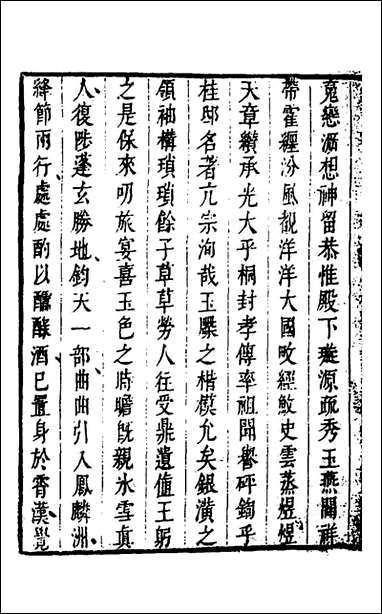 寬戀漏想神留恭惟殿下璇源疏秀玉燕開祥
帶霍纏汾風覩洋洋大國畋經斂史雲蒸煜煜
天章纘承光大乎桐封孝傳率祖開譽砰鍧乎
桂邸名著亢宗洵哉玉牒之楷模允矣銀潢之
領袖構瑣瑣餘子草草勞人往受鼎遺值王躬
之是保來叨旅宴喜玉色之時瞻既親冰雪真
人復陟蓬玄勝地鈞天一部曲曲引入鳳麟洲
絳節兩行處處酌以醽醁酒已置身於霄漢覺